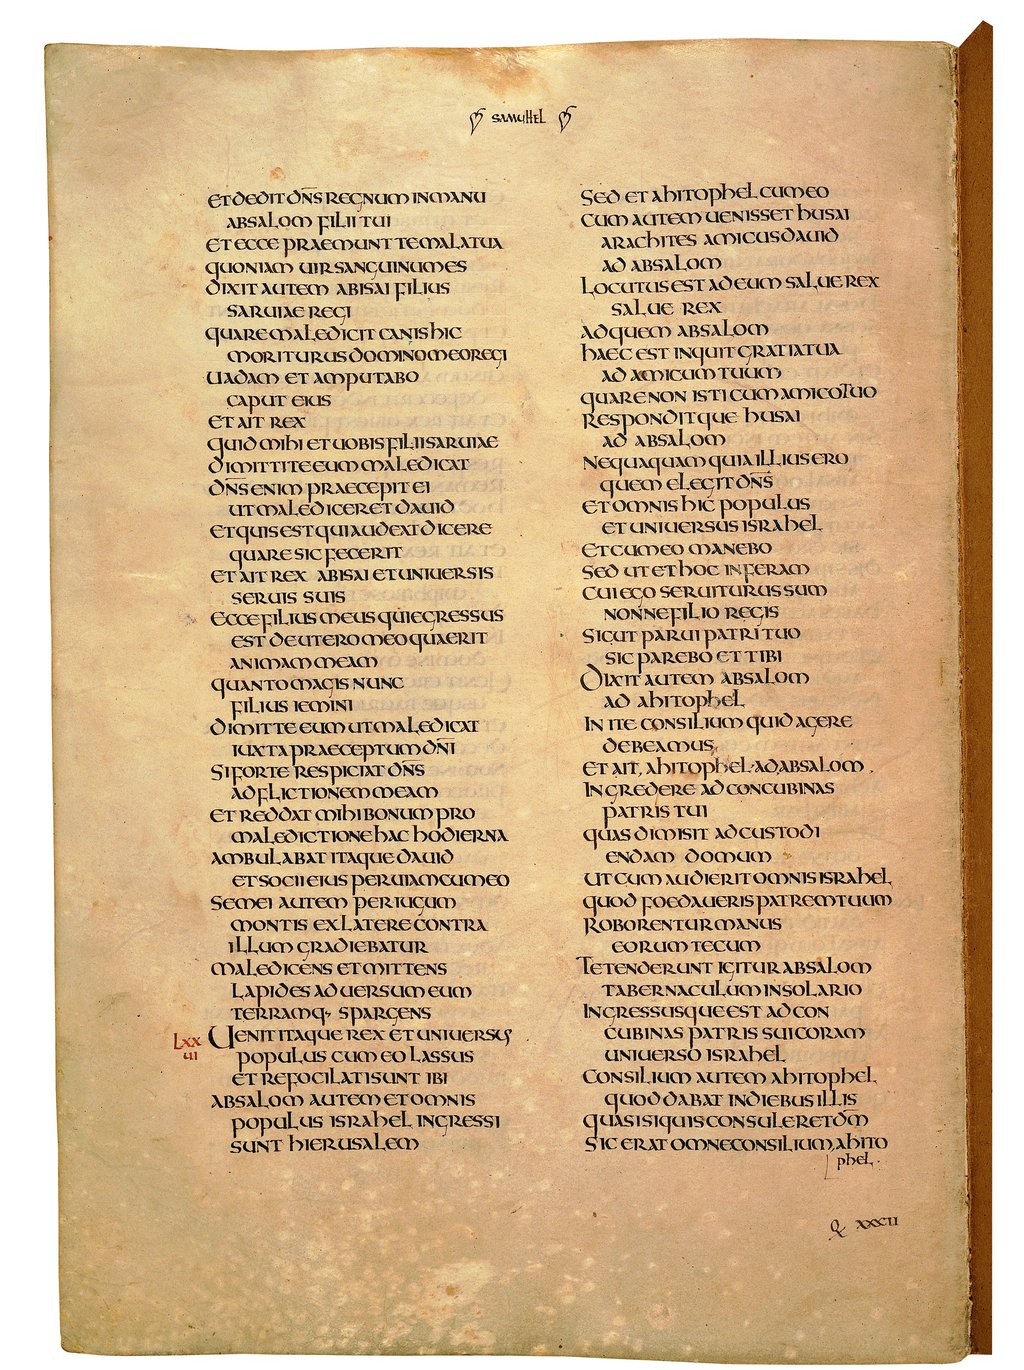 SAMUHEL
ET DEDIT DN̄S REGNUM IN MANU
ABSALOM FILII TUI
ET ECCE PRAEMUNT TE MALA TUA
QUONIAM UIR SANGUINUM ES
DIXIT AUTEM ABISAI FILIUS
SARUIAE REGI
QUARE MALEDICIT CANIS HIC
MORITURUS DOMINO MEO REGI
UADAM ET AMPUTABO
CAPUT EIUS
ET AIT REX
QUID MIHI ET UOBIS FILII SARUIAE
DIMITTITE EUM MALEDICAT
DN̄S ENIM PRAECEPIT EI
UT MALEDICERET DAUID
ET QUIS EST QUI AUDEAT DICERE
QUARE SIC FECERIT
ET AIT REX ABISAI ET UNIUERSIS
SERUIS SUIS
ECCE FILIUS MEUS QUI EGRESSUS
EST DE UTERO MEO QUAERIT
ANIMAM MEAM
QUANTO MAGIS NUNC
FILIUS IEMINI
DIMITTE EUM UT MALEDICAT
IUXTA PRAECEPTUM DN̄I
SI FORTE RESPICIAT DN̄S
ADFLICTIONEM MEAM
ET REDDAT MIHI BONUM PRO
MALEDICTIONE HAC HODIERNA
AMBULABAT ITAQUE DAUID
ET SOCII EIUS PER UIAM CUM EO
SEMEI AUTEM PER IUGUM
MONTIS EX LATERE CONTRA
ILLUM GRADIEBATUR
MALEDICENS ET MITTENS
LAPIDES ADUERSUM EUM
TERRAMQ· SPARGENS
LXX
UI
UENIT ITAQUE REX ET UNIUERSUS
POPULUS CUM EO LASSUS
ET REFOCILATI SUNT IBI
ABSALOM AUTEM ET OMNIS
POPULUS ISRAHEL INGRESSI
SUNT HIERUSALEM
SED ET AHITOPHEL CUM EO
CUM AUTEM UENISSET HUSAI
ARACHITES AMICUS DAUID
AD ABSALOM
LOCUTUS EST AD EUM SALUE REX
SALUE REX
AD QUEM ABSALOM
HAEC EST INQUIT GRATIA TUA
AD AMICUM TUUM
QUARE NON ISTI CUM AMICO TUO
RESPONDITQUE HUSAI
AD ABSALOM
NEQUAQUAM QUIA ILLIUS ERO
QUEM ELEGIT DN̄S
ET OMNIS HIC POPULUS
ET UNIUERSUS ISRAHEL
ET CUM EO MANEBO
SED UT ET HOC INFERAM
CUI EGO SERUITURUS SUM
NONNE FILIO REGIS
SICUT PARUI PATRI TUO
SIC PAREBO ET TIBI
DIXIT AUTEM ABSALOM
AD AHITOPHEL
INITE CONSILIUM QUID AGERE
DEBEAMUS
ET AIT, AHITOPHEL·AD ABSALOM.
INGREDERE AD CONCUBINAS
PATRIS TUI
QUAS DIMISIT AD CUSTODI
ENDAM DOMUM
UT CUM AUDIERIT OMNIS ISRAHEL
QUOD FOEDAUERIS PATREM TUUM
ROBORENTUR MANUS
EORUM TECUM
TETENDERUNT IGITUR ABSALOM
TABERNACULUM IN SOLARIO
INGRESSUSQUE EST AD CON
CUBINAS PATRIS SUI CORAM
UNIUERSO ISRAHEL
CONSILIUM AUTEM AHITOPHEL
QUOD DABAT IN DIEBUS ILLIS
QUASI SI QUIS CONSULERET DM̄
SIC ERAT OMNE CONSILIUM, AHITO
PHEL·
Q XXXII